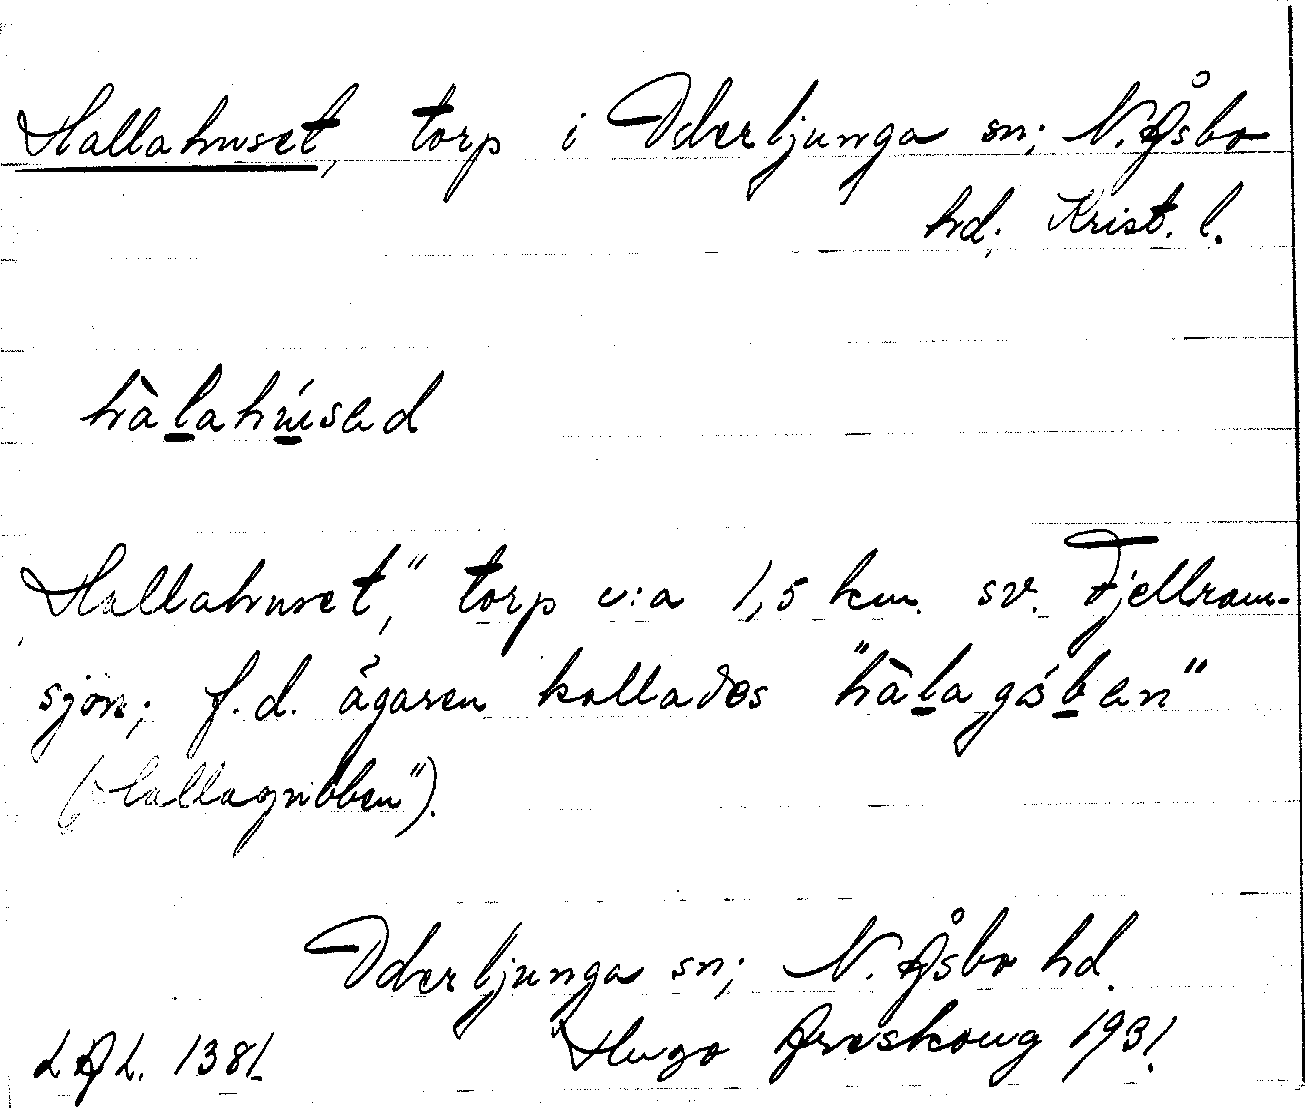 Hallahuset, torp i Oderljunga sn; N. Åsbo
hd. Krist. l.
hàlahúsad
Hallahuset", torp c:a 1,5 km. sv. Fjellram-
sjön; f.d. ägaren kallades "hàlagóban"
("Hallagubben").
Oderljunga sn; N. Åsbo hd.
LAL. 1381. Hugo Areskoug 1931.